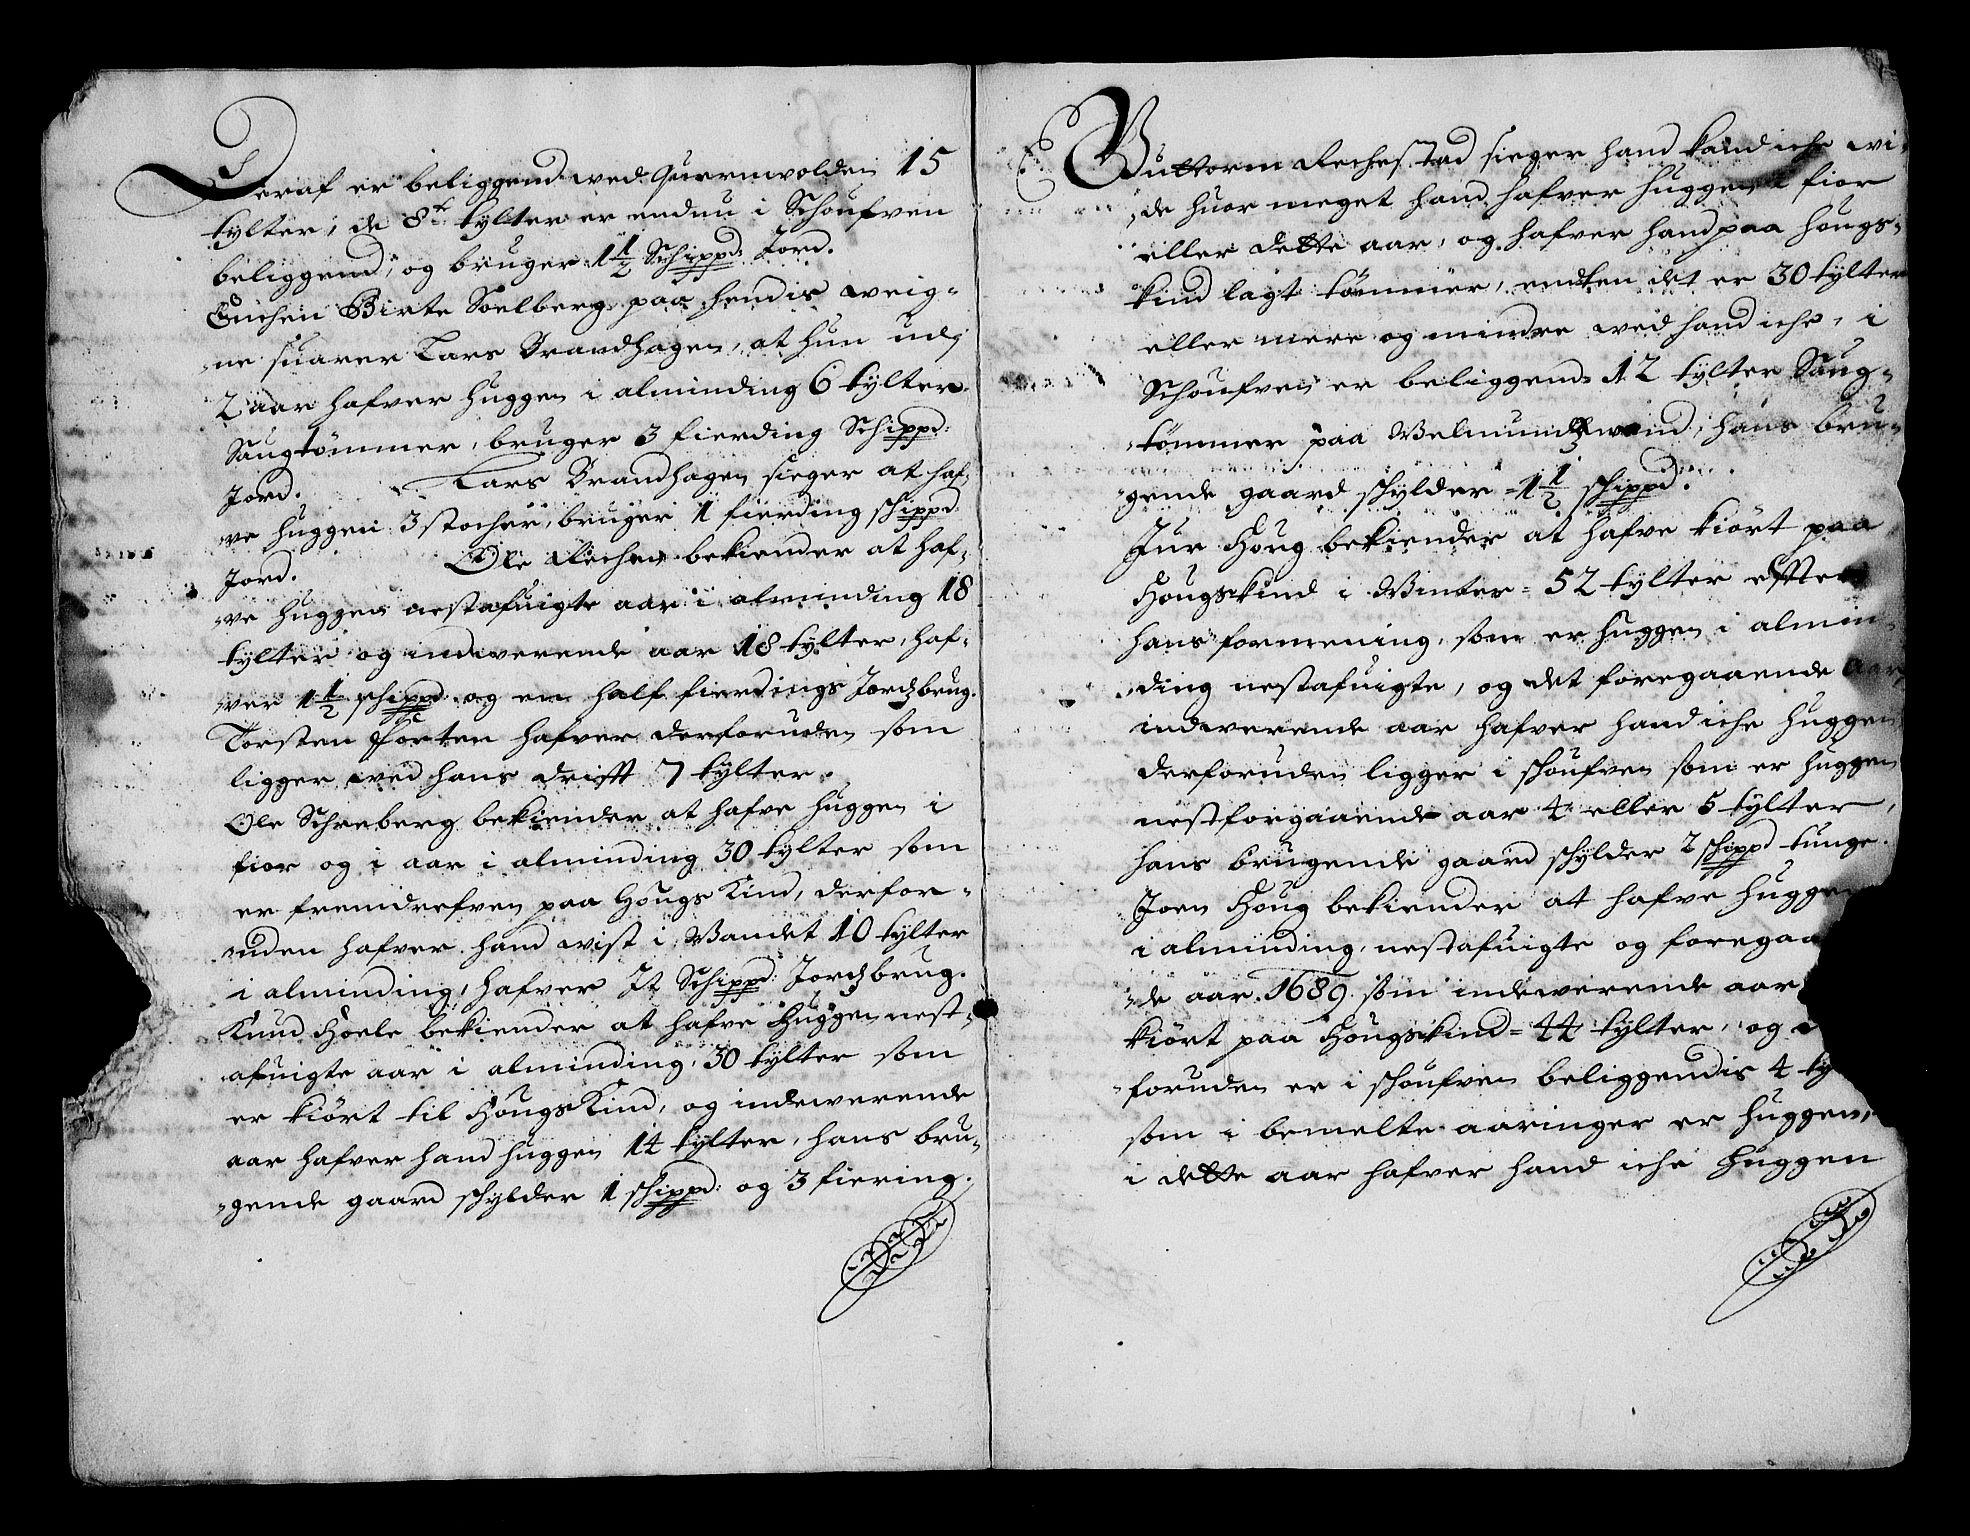 Deraf er beliggend wed Quernwolden 15
tylter, de 8te tylter er endnu i Schoufven
beliggend, og bruger 1½ Schippd: Jord.
Enchen Birte Soelberg paa hendis weig-
ne suarer Lars Brandhagen, at hun udj
2 aar hafver huggen i alminding 6 tylter
Saugtømmer, bruger 3 fierding Schippd:
Jord. Lars Brandhagen sieger at haf-
ve huggen 3 stocher, bruger 1 fierding schippd:
Jord. Ole Rechen bekiender at haf-
ve huggen nestafuigte aar i alminding 18
tylter og indewerende aar 18 tylter, haf-
ver 1½ schippd: og en half fierdings Jordbrug.
Torsten Horten hafver derforuden som
ligger wed hans drifft 7 tylter.
Ole Schreberg bekiender at hafve huggen i
fior og i aar i alminding 30 tylter som
er fremdrefven paa Hougs Kind, derfor-
uden hafver hand wist i Wandet 10 tylter
i alminding, hafver 2½ Schippd: Jordbrug.
Knud Hoele bekiender at hafve huggen nest-
afuigte aar i alminding 30 tylter som
er kiørt til Hougs Kind, og indewerende
aar hafver hand huggen 14 tylter, hans bru-
gende gaard schylder 1 schippd: og 3 fiering.
Guttorm Rechestad sieger hand kand iche wi-
de huor meget hand hafver huggen i fior
eller dette aar, og hafver hand paa Hougs-
kind lagt tømmer, endten det er 30 tylter
eller mere og mindre wed hand iche, i
Schoufven er beliggend 12 tylter Saug-
tømmer paa Welmunds wand, hans bru-
gende gaard schylder 1½ schippd:
Jur Houg bekiender at hafve kiørt paa
Hougskind i Winter 52 tylter effter
hans formening, som er huggen i almin-
ding nestafuigte, og det foregaaende Aar,
indewerende aar hafver hand iche huggen
derforuden ligger i schoufven som er huggen
nestforgaaende aar 4 eller 5 tylter,
hans brugende gaard schylder 2 schippd tunge.
Joen Houg bekiender at hafve hugge
i alminding, nestafuigte og foregaa
de aar 1689 som indewerende aar
kiørt paa Hougskind 44 tylter, og
foruden er i schoufven beliggendis 4 ty
som i bemelte aaringer er huggen,
i dette aar hafver hand iche huggen